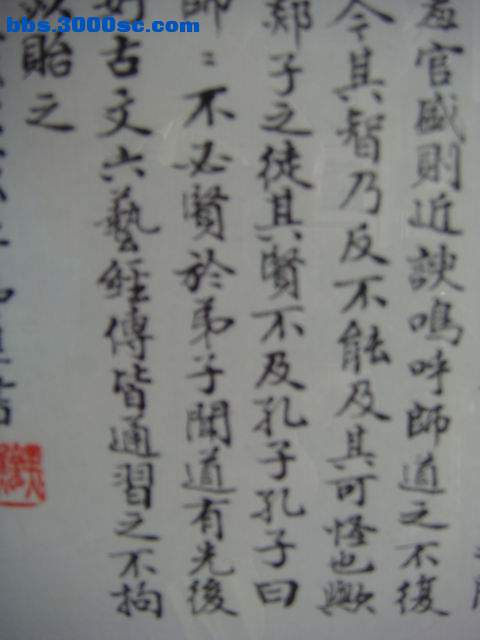 bbs.3000sc.com
羞官盛則近諛嗚呼師道之不復
今其智乃反不能及其可怪也歟
郯子之徒其賢不及孔子孔子曰
師:不必賢於弟子聞道有先後
好古文六藝經傳皆通習之不拘
以貽之